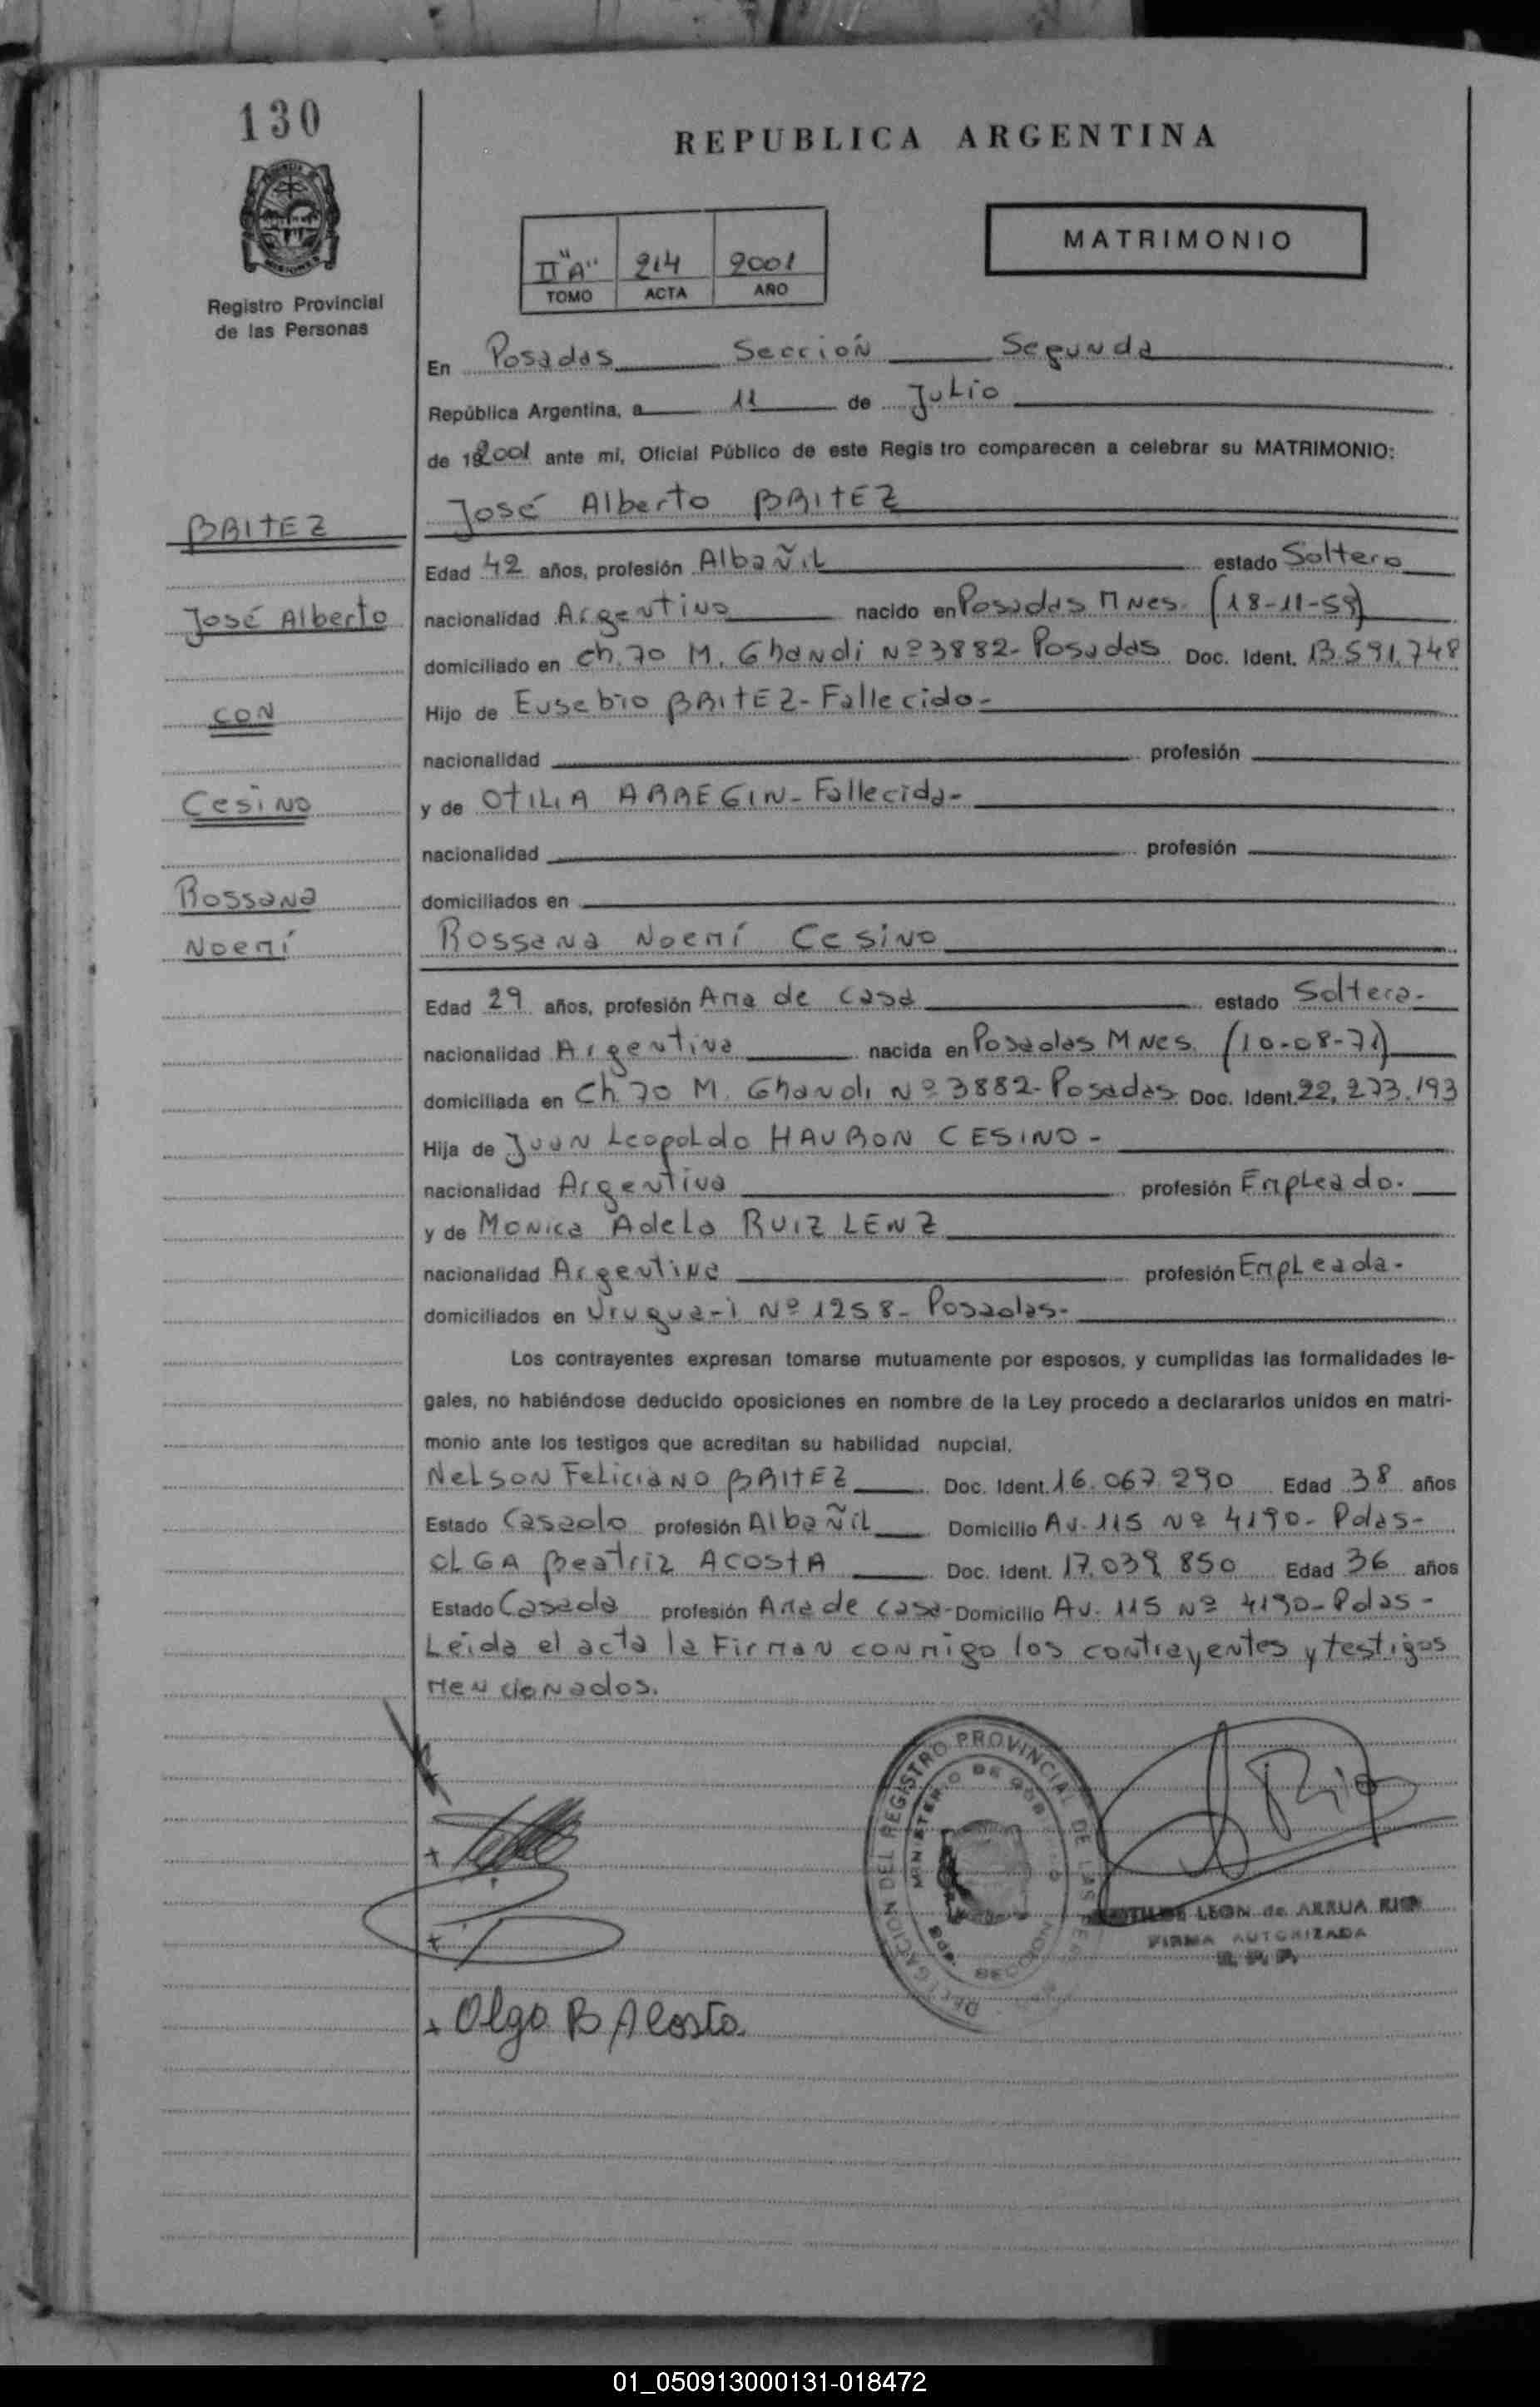 130
REPUBLICA ARGENTINA
MATRIMONIO
II "A" 214 2001
TOMO ACTA AÑO
Registro Provincial
de las Personas
En Posadas Sección Segunda
República Argentina, a 11 de Julio
de 2001 ante mi, Oficial Público de este Registro comparecen a celebrar su MATRIMONIO:
José Alberto BRITEZ
BRITEZ
Edad 42 años, profesión Albañil estado Soltero
José Alberto
nacionalidad Argentino nacido en Posadas Mnes. (18-11-58)
domiciliado en Ch. 70 M. Ghandi Nº 3882- Posadas Doc. Ident. 13.591.748
con
Hijo de Eusebio BRITEZ- Fallecido-
nacionalidad profesión
Cesino
y de OTILIA ARREGIN- Fallecida-
nacionalidad profesión
Rossana
domiciliados en
Noemí
Rossana Noemí Cesino
Edad 29 años, profesión Ama de casa estado Soltera-
nacionalidad Argentina nacida en Posadas Mnes. (10-08-71)
domiciliada en Ch. 70 M. Ghandi Nº 3882- Posadas Doc. Ident. 22.273.193
Hija de Juan Leopoldo HAURON CESINO-
nacionalidad Argentina profesión Empleado.
y de Monica Adela RUIZ LENZ
nacionalidad Argentina profesión Empleada-
domiciliados en Urugua-i Nº 1258- Posadas-
Los contrayentes expresan tomarse mutuamente por esposos, y cumplidas las formalidades le-
gales, no habiéndose deducido oposiciones en nombre de la Ley procedo a declararlos unidos en matri-
monio ante los testigos que acreditan su habilidad nupcial.
Nelson Feliciano BRITEZ Doc. Ident. 16.067.290 Edad 38 años
Estado Casado profesión Albañil Domicilio Av. 115 Nº 4190- Pdas-
OLGA Beatriz ACOSTA Doc. Ident. 17.039.850 Edad 36 años
Estado Casada profesión Ama de casa- Domicilio Av. 115 Nº 4190- Pdas-
Leida el acta la Firman conmigo los contrayentes y testigos
mencionados.
DELEGACION DEL REGISTRO PROVINCIAL DE LAS
MINISTERIO DE GOB
LEON de ARRUA RIO
FIRMA AUTORIZADA
Olga B Acosta
01_050913000131-018472